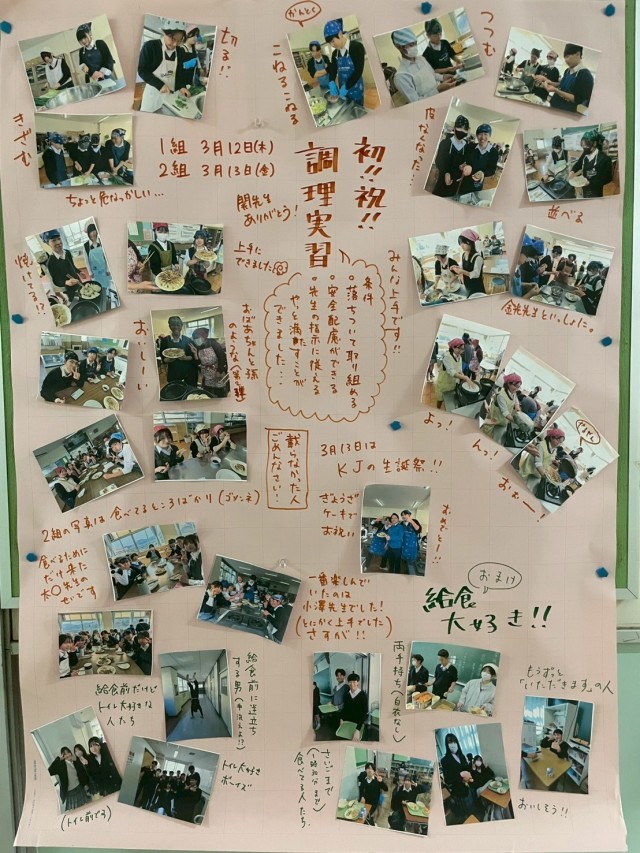 切る!!
きざむ
1組 3月12日(木)
2組 3月13日(金)
ちょっと危なっかしい…
かんとく
こねるこねる
つつむ
皮なくなった…
並べる
初!!祝!!
調理実習
関先生
ありがとう!
上手に
できました
焼けてる!?
おいしーい
おばあちゃんと孫
のような
条件
落ちついて取り組める
安全配慮ができる
先生の指示に従える
やっと満たすことが
できました…
みんな上手です!!
先生といっしょに。
よっ!
んっ!
おぉー!
載らなかった人
ごめんなさい!
3月13日は
KJの生誕祭!!
ぎょうざ
ケーキで
お祝い
おめでとー!!
2組の写真は食べてるところばかり(ゴメンネ)
食べるために
だけ来た
太〇先生の
せいです
一番楽しんで
いたのは
小澤先生でした!
(とにかく上手でした)
さすが!!
おまけ
給食
大好き!!
給食前だけど
トイレ大好きな
人たち
(トイレ前です)
給食前に逆立ち
する男
トイレ大好き
ボーイズ
両手持ち(白衣なし)
さいごまで
(1時30分まで)
食べてる人たち.
もうずっと
「いただきます」の人
おいしそう!!